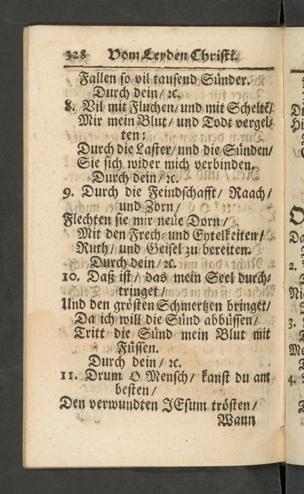 328 Vom Leyden Christi.
Fallen so vil tausend Sünder.
Durch dein/ ꝛc.
8. Vil mit Fluchen/ und mit Schelte/
Mir mein Blut/ und Todt vergel-
ten:
Durch die Laster/ und die Sünden/
Sie sich wider mich verbinden.
Durch dein/ ꝛc.
9. Durch die Feindschafft/ Raach/
und Zorn/
Flechten sie mir neue Dorn/
Mit den Frech- und Eytelkeiten/
Ruth/ und Geisel zu bereiten.
Durch dein/ ꝛc.
10. Daß ist/ das mein Seel durch-
tringet/
Und den grösten Schmertzen bringet/
Da ich will die Sünd abbüssen/
Tritt die Sünd mein Blut mit
Füssen.
Durch dein/ ꝛc.
11. Drum O Mensch/ kanst du am
besten/
Den verwundten JEsum trösten/
Wann